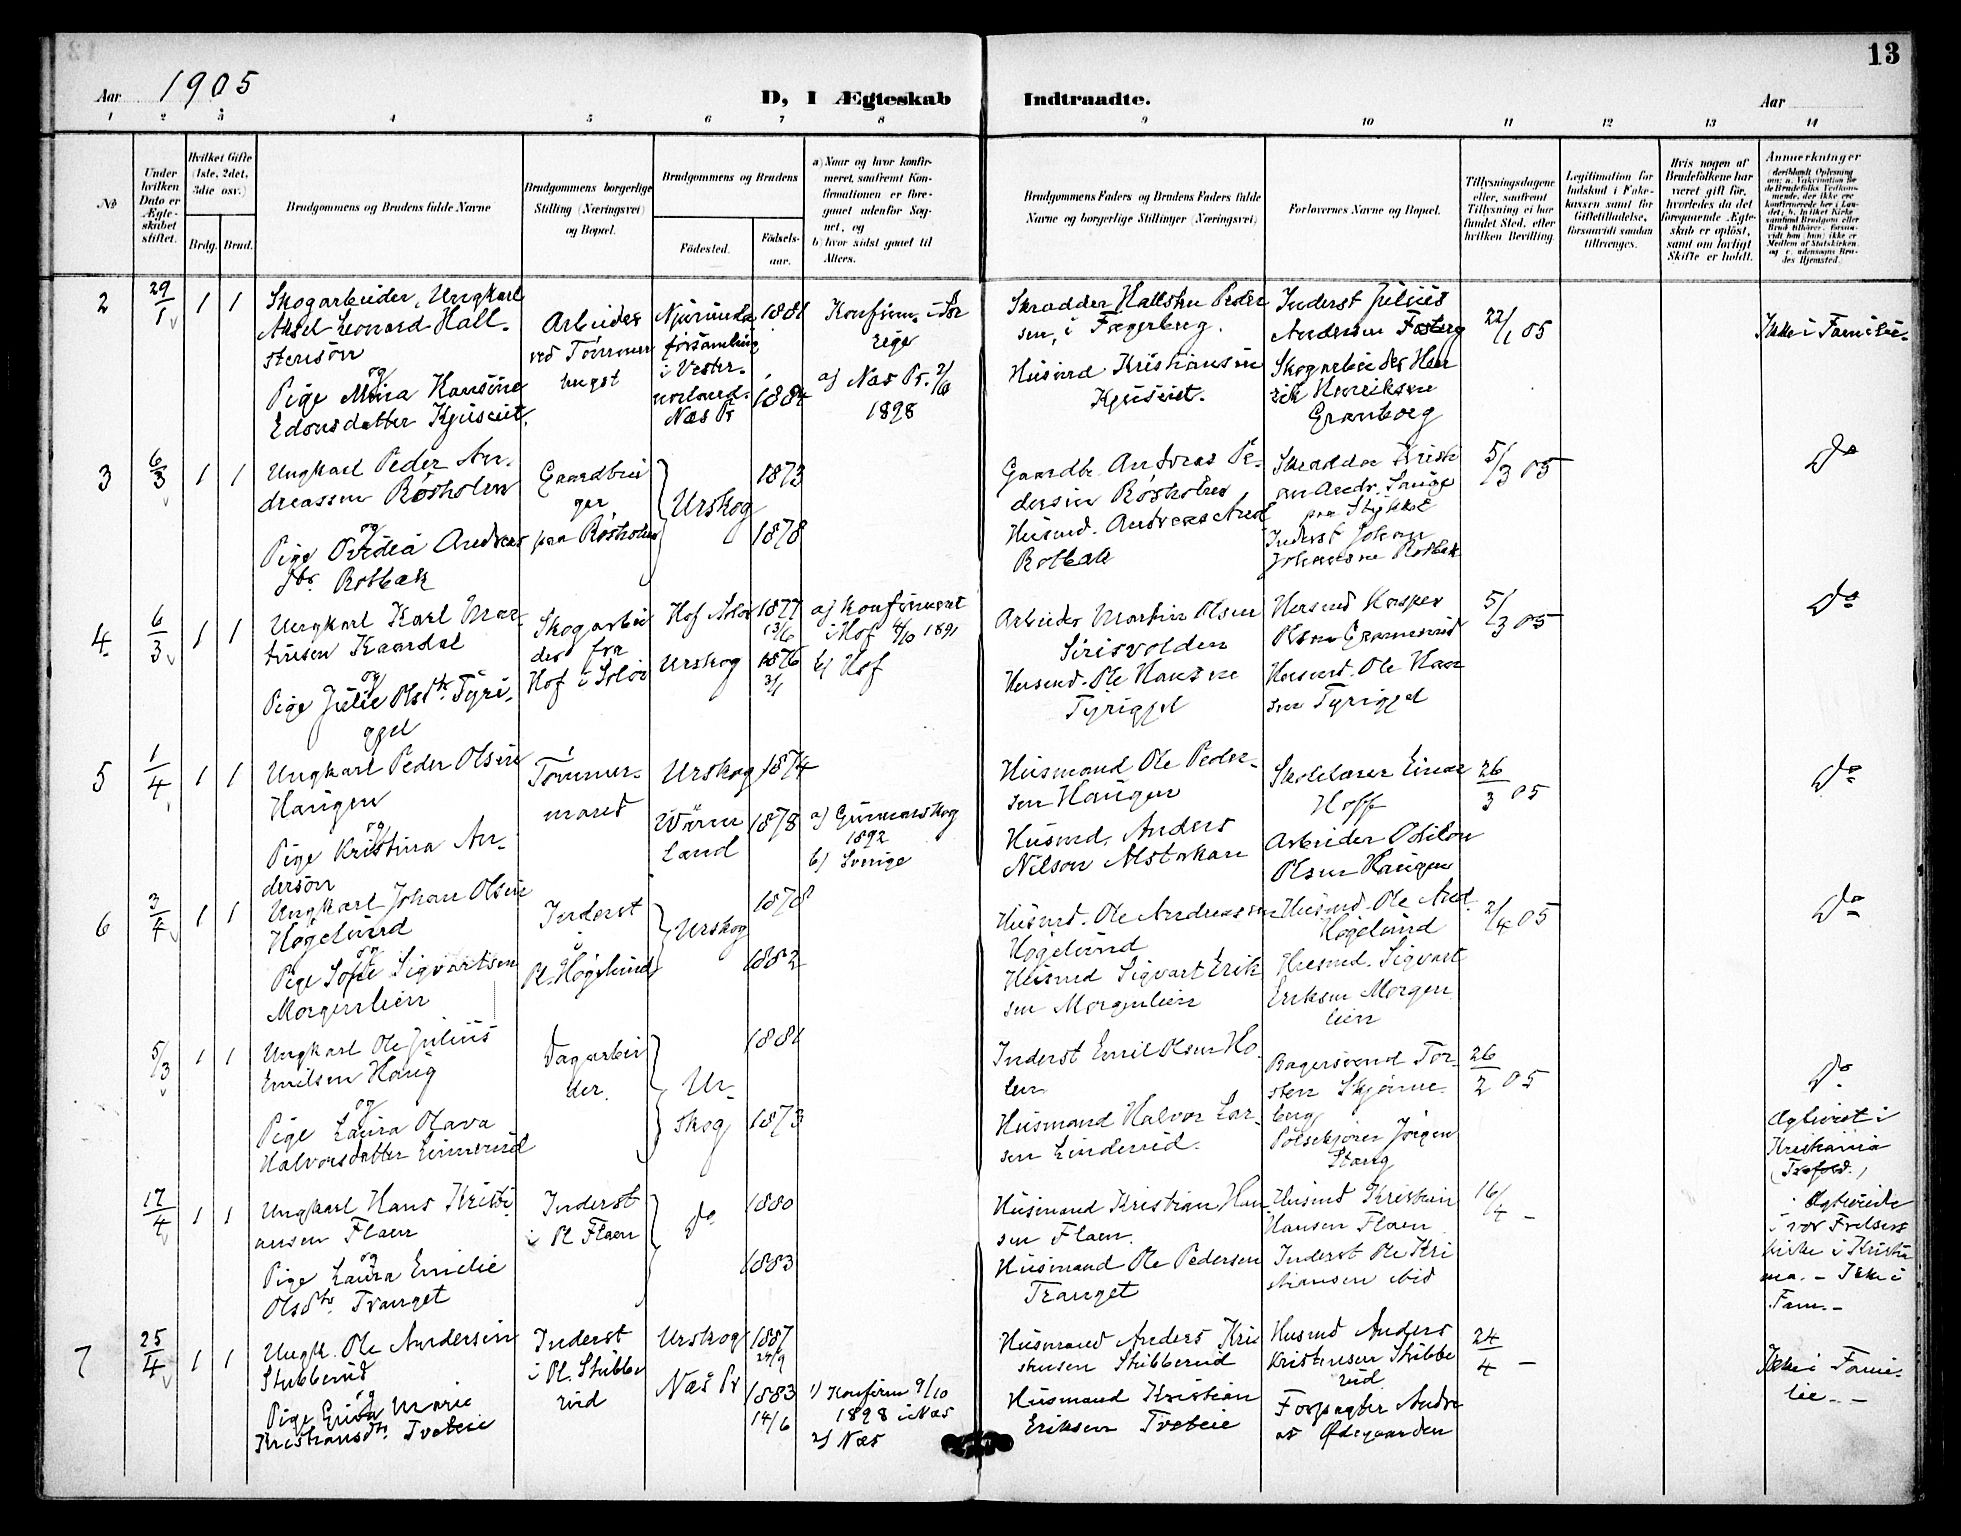 13
Aar 1905
D, I Ægteskab Indtraadte.
Aar
1 2 3 4 5 6 7 8 9 10 11 12 13 14
No
Under hvilken Dato er Ægteskabet stiftet.
Hvilket Gifte (1ste, 2det, 3die osv.)
Brdg. Brud.
Brudgommens og Brudens fulde Navne
Brudgommens borgerlige Stilling (Næringsvei) og Bopæl.
Brudgommens og Brudens
Fødested. Fødselsaar.
a) Naar og hvor konfirmeret, saafremt Konfirmationen er foregaaet udenfor Sognet, og
b) hvor sidst gaaet til Alters.
Brudgommens Faders og Brudens Faders fulde Navne og borgerlige Stillinger (Næringsvei)
Forlovernes Navne og Bopæl.
Tillysningsdagene eller, saafremt Tillysning ei har fundet Sted, efter hvilken Bevilling.
Legitimation for Indskud i Enkekassen samt for Giftetilladelse, forsaavidt saadan tiltrænges.
Hvis nogen af Brudefolkene har været gift før, hvorledes da det foregaaende Ægteskab er opløst, samt om lovligt Skifte er holdt.
Anmerkninger
2
29/1
1 1
Skogarbeider, Ungkarl
Aksel Leonard Hall-
stensön
og
Pige Mina Hansine
Edonsdatter Kjuseiet.
Arbeider
ved Tömmer
hugst
Njurunda
församling
i Vester-
norland.
Næs Pr
1881
1884
Konfirm. i Sve
rige
a) Næs Pr. 2/10
1898
Skrædder Hallsten Peder
sen, i Fagerberg.
Husmd Kristiansen
Kjuseiet.
Inderst Julius
Andersen Fosberg
Skogarbeider Hen
rik Henriksen
Granberg
22/1 05
Ikke i Familie.
3
6/3
1 1
Ungkarl Peder An-
dreassen Rösholen
og
Pige Ovidia Andreas
dtr. Rotbæk
Gaardbru
ger
paa Rösholen
Urskog
1873
1878
Gaardbr. Andreas Pe-
dersen Rösholen
Husmd. Andreas And
Rotbæk
Skrædder Krist
an Andr. Lauge
paa Stykket
Inderst Johan
Johansen Rotbæk
5/3 05
Do
4.
6/3
1 1
Ungkarl Karl Mar
tinsen Kaardal
og
Pige Julie Olsdtr. Tyri-
gjel
Skogarbei
der fra
Hof i Solör
Hof Solör
Urskog
1877
13/6
1876
3/1
a) Konfirmeret
i Hof 4/10 1891
b) Hof
Arbeider Martin Olsen
Sirisvolden
Husmd. Ole Hansen
Tyrigjel
Husmd Kasper
Olsen Grønnerud
Husmd. Ole Han
sen Tyrigjel
5/3 05
Do
5
1/4
1 1
Ungkarl Peder Olsen
Haugen
og
Pige Kristina An-
dersön
Tömmer-
mand
Urskog
Wärm
land
1874
1878
a) Gunnarskog
1892
b) Sverige
Husmand Ole Peder-
sen Haugen
Husmd. Anders
Nilson Alstakan
Skolelærer Einar
Hoff
Arbeider Odilon
Olsen Haugen
26/3 05
Do
6
3/4
1 1
Ungkarl Johan Olsen
Högelund
og
Pige Sofie Sigvartsen
Morgenlien
Inderst
i
Pl. Högelund
Urskog
1878
1882
Husmd. Ole Andreassen
Högelund
Husmd Sigvart Erik
sen Morgenlien
Husmd. Ole And.
Högelund
Husmd. Sigvart
Eriksen Morgen
lien
2/4 05
Do
5/3
1 1
Ungkarl Ole Julius
Emilsen Haug
og
Pige Laura Olava
Halvorsdatter Linnerud
Dagarbei
der.
Ur-
skog
1881
1873
Inderst Emil Olsen Ho-
len
Husmand Halvor Lar-
sen Linderud.
Bagersvend Tor-
sten Skjønne-
berg
Pölsekjörer Jörgen
Stang
26/2 05
Do
Ægteviet i
Kristiania
(Trefold.)
17/4
1 1
Ungkarl Hans Kristi-
ansen Flaen
og
Pige Laura Emilie
Olsdtr. Tranget
Inderst
i Pl Flaen
do
1880
1883
Husmand Kristian Han
sen Flaen.
Husmand Ole Pedersen
Tranget
Husmd Kristian
Hansen Flaen
Inderst Ole Kri
stiansen
16/4 –
Ægteviede
i vor Frelsers
kirke i Kristia
nia. – Ikke i
Fam. –
7
25/4
1 1
Ungk. Ole Andersen
Stubberud
og
Pige Marie
Kristiansdtr. Tveteie
Inderst
i Pl. Stubbe
rud
Urskog
Næs Pr
1887
24/9
1883
14/6
1) Konfirm 9/10
1898 i Næs
2) Næs
Husmand Anders Kri
stensen Stubberud
Husmand Kristian
Eriksen Tveteie
Husmd Anders
Kristensen Stubbe
rud
Forpagter Andre
as Ödegaarden
24/4 –
Ikke i Fami-
lie. –